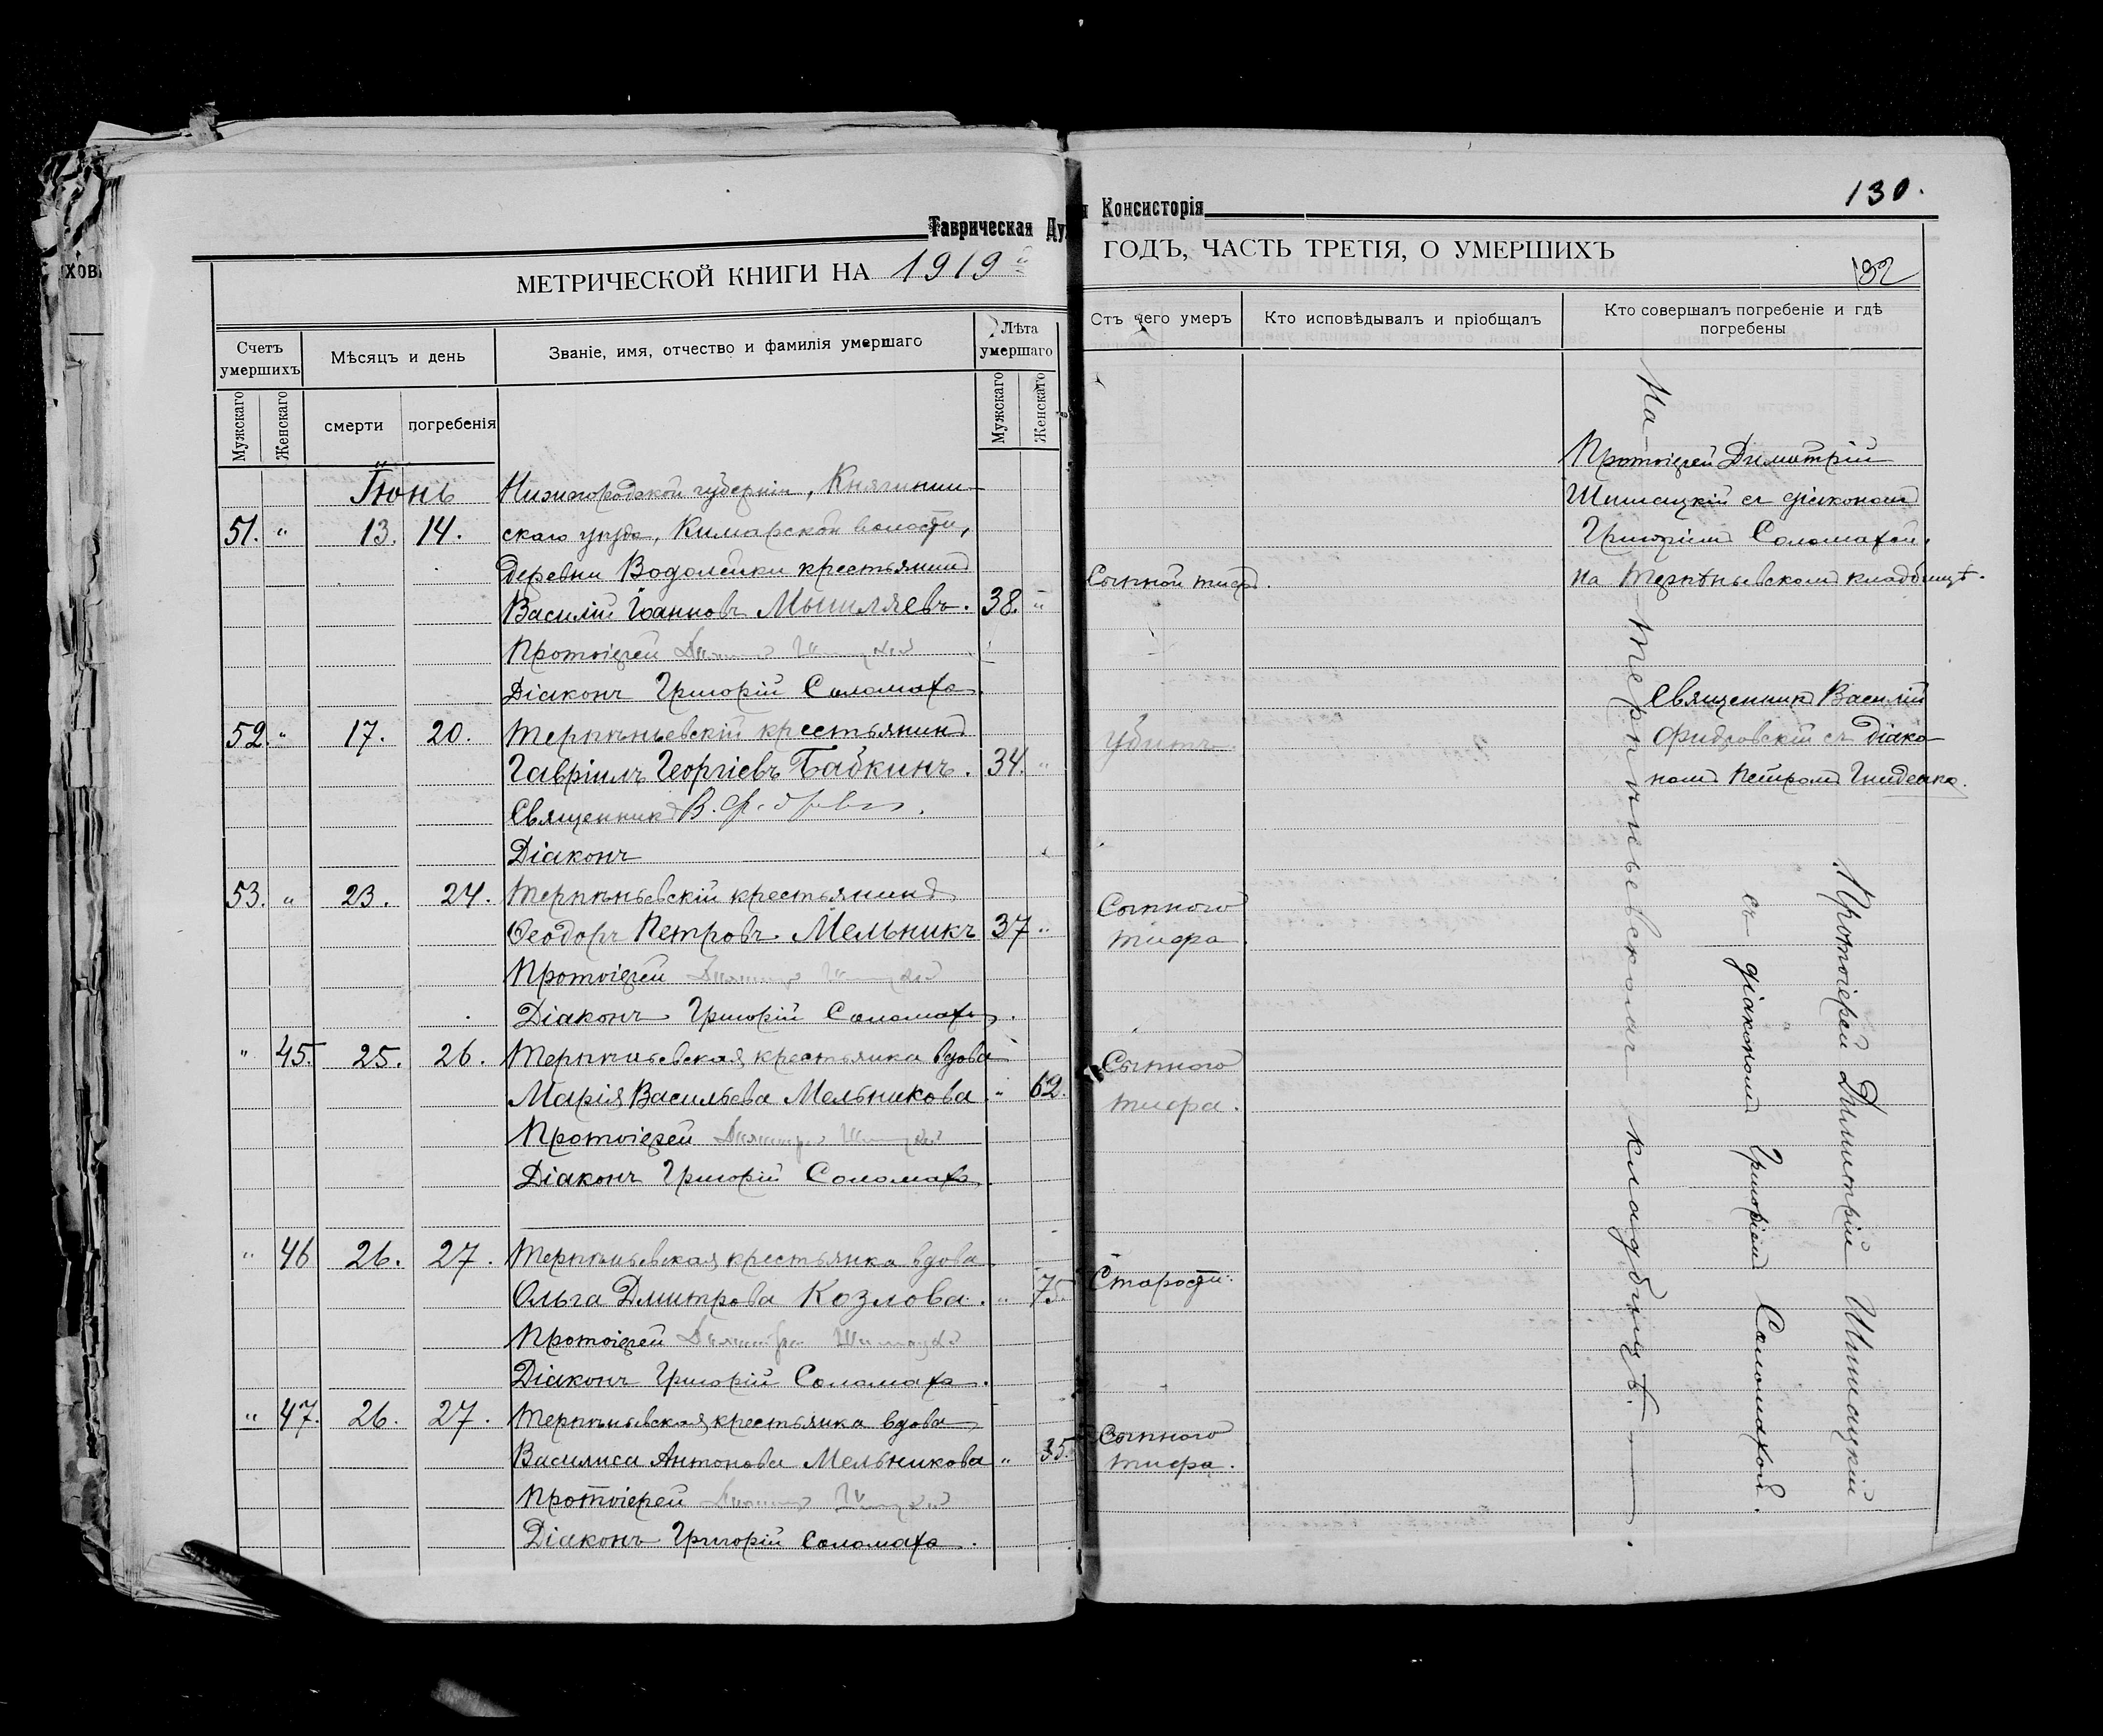 130.
Таврическая Ду
я Консисторія
МЕТРИЧЕСКОЙ КНИГИ НА 1919 й
ГОДЪ, ЧАСТЬ ТРЕТІЯ, О УМЕРШИХЪ
132
Счетъ умершихъ
Мѣсяцъ и день
Званіе, имя, отчество и фамилія умершаго
Лѣта умершаго
Стъ чего умеръ
Кто исповѣдывалъ и пріобщалъ
Кто совершалъ погребеніе и гдѣ погребены
Мужскаго
Женскаго
смерти
погребенія
Мужскаго
Женскаго
Іюнь
Нижегородской губерніи, Княгинин-
51. " 13. 14. скаго уѣзда, Кимарской волости,
деревни Водолейки крестьянинъ
Василій Іоанновъ Мышляевъ. 38. "
Сыпной тифъ.
Протоіерей
Діаконъ Григорій Соломаха.
Протоіерей Димитрій
Шишацкій съ діакономъ
Григоріемъ Соломахой.
на Терпѣньевскомъ кладбищѣ.
52. " 17. 20. Терпѣньевскій крестьянинъ
Гавріилъ Георгіевъ Бабкинъ. 34. "
Убитъ.
Священникъ В.
Діаконъ
Священникъ Василій
съ діако-
номъ Петромъ Гниденко.
53. " 23. 24. Терпѣньевскій крестьянинъ
Ѳеодоръ Петровъ Мельникъ 37 "
Сыпного
тифа.
Протоіерей
Діаконъ Григорій Соломаха.
" 45. 25. 26. Терпѣньевская крестьянка вдова
Марія Васильева Мельникова " 62.
Сыпного
тифа.
Протоіерей
Діаконъ Григорій Соломаха.
" 46 26. 27. Терпѣньевская крестьянка вдова
Ольга Дмитрова Козлова. " 75.
Старости.
Протоіерей
Діаконъ Григорій Соломаха.
" 47. 26. 27. Терпѣньевская крестьянка вдова
Василиса Антонова Мельникова " 35.
Сыпного
тифа.
Протоіерей
Діаконъ Григорій Соломаха.
Протоіерей Димитрій Шишацкій
съ діакономъ Григоріемъ Соломахой.
На Терпѣньевскомъ кладбищѣ.